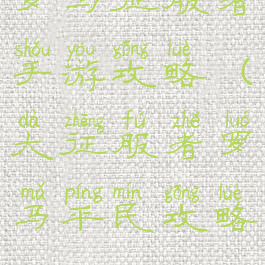 罗马征服者
shǒu yóu gōng lüè
手游攻略（
dà zhēng fú zhě luó
大征服者罗
mǎ píng mín gōng lüè
马平民攻略